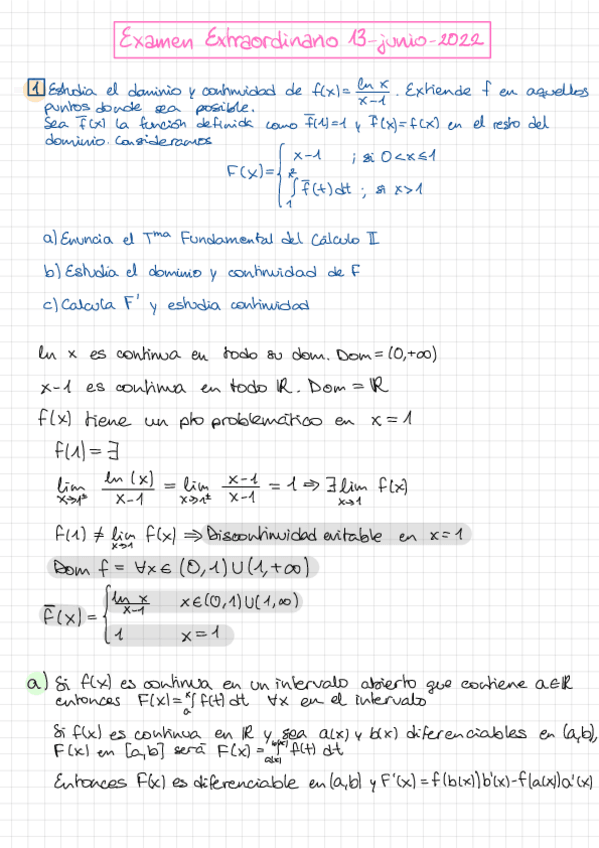 Examen Extraordinario 13-junio-2022
1 Estudia el dominio y continuidad de f(x)= ln x / x-1 . Extiende f en aquellos
puntos donde sea posible.
Sea f̄(x) la función definida como f̄(1)=1 y f̄(x)=f(x) en el resto del
dominio. Consideramos
F(x)= { x-1 ; si 0<x≤1
∫₁ˣ f̄(t)dt ; si x>1
a) Enuncia el Tᵐᵃ Fundamental del Cálculo II
b) Estudia el dominio y continuidad de F
c) Calcula F' y estudia continuidad
ln x es continua en todo su dom. Dom=(0,+∞)
x-1 es continua en todo ℝ. Dom=ℝ
f(x) tiene un pto problemático en x=1
f(1)=∄
lim x→1± ln(x) / x-1 = lim x→1± x-1 / x-1 = 1 ⇒ ∃ lim x→1 f(x)
f(1) ≠ lim x→1 f(x) ⇒ Discontinuidad evitable en x=1
Dom f = ∀x∈(0,1)∪(1,+∞)
f̄(x) = { ln x / x-1 x∈(0,1)∪(1,∞)
1 x=1
a) Si f(x) es continua en un intervalo abierto que contiene a∈ℝ
entonces F(x)=∫ₐˣ f(t)dt ∀x en el intervalo
Si f(x) es continua en ℝ y sea a(x) y b(x) diferenciables en (a,b),
F(x) en [a,b] será F(x)=∫ a(x) b(x) f(t) dt
Entonces F(x) es diferenciable en (a,b) y F'(x)=f(b(x))b'(x)-f(a(x))a'(x)